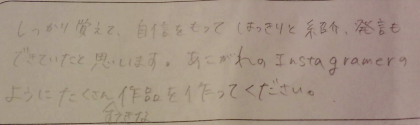 しっかり覚えて、自信をもってはっきりと紹介、発言も
できていたと思います。あこがれのInstagramerの
ようにたくさん作品を作ってください。
好きな